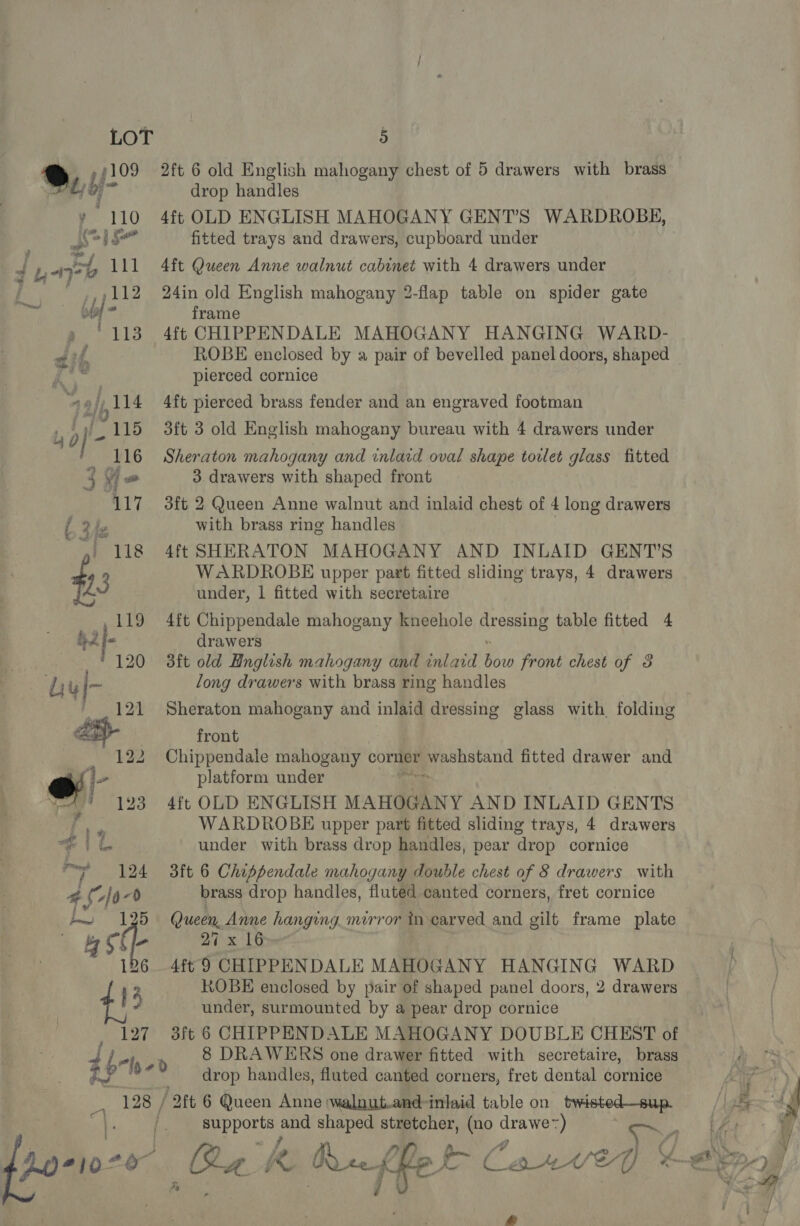 LOT 5
109 2ft 6 old English mahogany chest of 5 drawers with brass
drop handles
110 4ft OLD ENGLISH MAHOGANY GENT'S WARDROBE,
fitted trays and drawers, cupboard under
111 4ft Queen Anne walnut cabinet with 4 drawers under
112 24in old English mahogany 2-flap table on spider gate
frame
113 4ft CHIPPENDALE MAHOGANY HANGING WARD-
ROBE enclosed by a pair of bevelled panel doors, shaped
pierced cornice
114 4ft pierced brass fender and an engraved footman
115 3ft 3 old English mahogany bureau with 4 drawers under
116 Sheraton mahogany and inlaid oval shape toilet glass fitted
3 drawers with shaped front
117 3ft 2 Queen Anne walnut and inlaid chest of 4 long drawers
with brass ring handles
118 4ft SHERATON MAHOGANY AND INLAID GENT'S
WARDROBE upper part fitted sliding trays, 4 drawers
under, 1 fitted with secretaire
119 4ft Chippendale mahogany kneehole dressing table fitted 4
drawers
120 3ft old English mahogany and inlaid bow front chest of 3
long drawers with brass ring handles
121 Sheraton mahogany and inlaid dressing glass with folding
front
122 Chippendale mahogany corner washstand fitted drawer and
platform under
123 4ft OLD ENGLISH MAHOGANY AND INLAID GENTS
WARDROBE upper part fitted sliding trays, 4 drawers
under with brass drop handles, pear drop cornice
124 3ft 6 Chippendale mahogany double chest of 8 drawers with
brass drop handles, fluted canted corners, fret cornice
125 Queen Anne hanging mirror in carved and gilt frame plate
27 x 16
126 4ft 9 CHIPPENDALE MAHOGANY HANGING WARD
ROBE enclosed by pair of shaped panel doors, 2 drawers
under, surmounted by a pear drop cornice
127 3ft 6 CHIPPENDALE MAHOGANY DOUBLE CHEST of
8 DRAWERS one drawer fitted with secretaire, brass
drop handles, fluted canted corners, fret dental cornice
128 2ft 6 Queen Anne walnut and inlaid table on twisted sup.
supports and shaped stretcher, (no drawer)